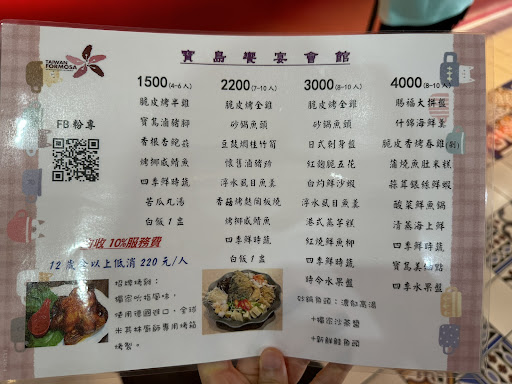 寶島饗宴會館
TAIWAN
FORMOSA
FB粉專
1500(4-6人)
脆皮烤半雞
寶島滷豬腳
香根杏鮑菇
烤椰咸鯖魚
四季鮮時蔬
苦瓜丸湯
白飯1盅
2200(7-10人)
脆皮烤全雞
砂鍋魚頭
豆豉燜桂竹筍
懷舊滷豬
淡水虱目魚羹
香菇烤麩闆板燒
烤椰咸鯖魚
四季鮮時蔬
白飯1盅
3000(8-10人)
脆皮烤全雞
砂鍋魚頭
日式刺身盤
紅麴脆五花
白灼鮮沙蝦
淡水虱目魚羹
港式蒸芋糕
紅燒鮮魚柳
四季鮮時蔬
時令水果盤
4000(8-10人)
賜福大拼盤
什錦海鮮羹
脆皮香烤春雞
蒲燒魚肚米糕
蒜茸銀絲鮮蝦
酸菜鮮魚鍋
清蒸海上鮮
四季鮮時蔬
寶島美甜點
四季鮮水果
收10%服務費
12歲以上低消220元/人
招牌烤雞：
獨家吮指風味，
使用德國進口，全球
米其林廚師專用烤箱
烤製。
砂鍋魚頭：濃郁高湯
+獨家沙茶醬
+新鮮鰱魚頭